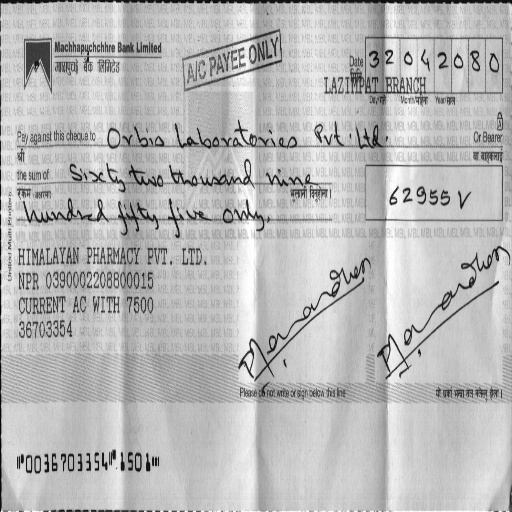 Machhapuchchhre Bank Limited
माछापुच्छ्रे बैंक लिमिटेड
A/C PAYEE ONLY
Date 32042080
मिति
LAZIMPAT BRANCH
Day/गते Month/महिना Year/साल
Pay against this cheque to Orbis Laboratories Pvt. Ltd. Or Bearer
श्री वा वाहकलाई
the sum of Sixty two thousand nine
रुकम अक्षरमा भुक्तानी दिनुहोला ।
hundred fifty five only. 62955 V
HIMALAYAN PHARMACY PVT. LTD.
NPR 0390002208800015
CURRENT AC WITH 7500
36703354
Please do not write or sign below this line
⑈0036703354⑈ 1501⑈